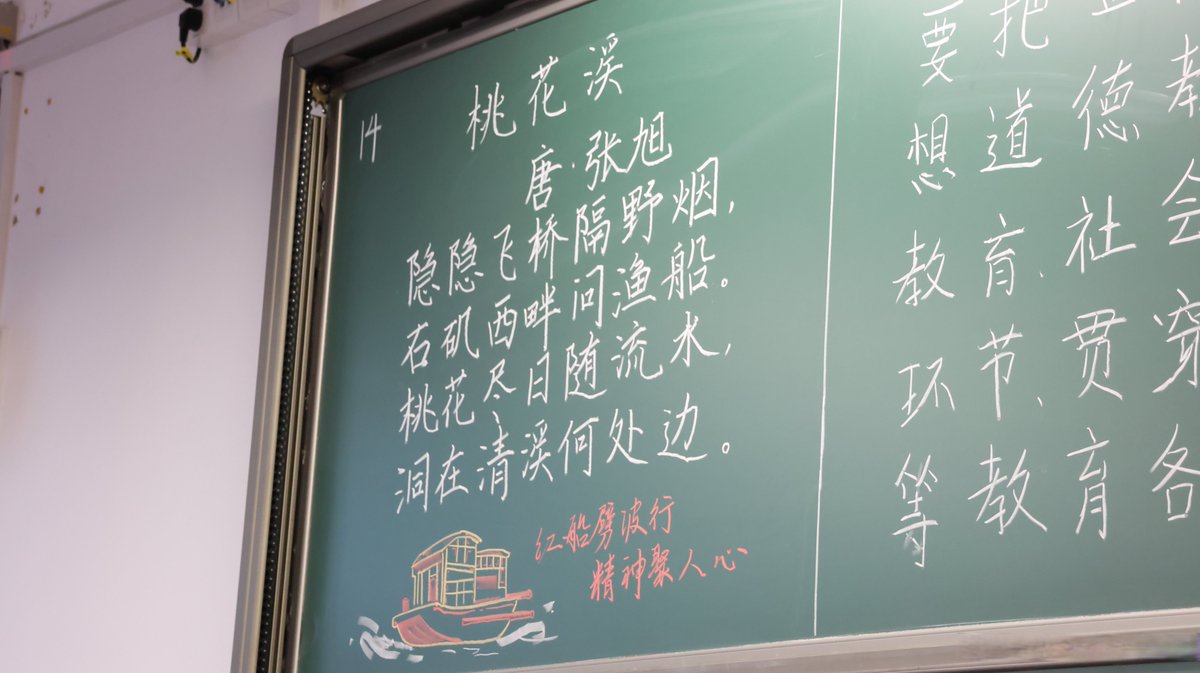 14
桃花溪
唐·张旭
隐隐飞桥隔野烟,
石矶西畔问渔船。
桃花尽日随流水,
洞在清溪何处边。
红船劈波行
精神聚人心
要把
想道德教
教育、社会
环节、贯穿
等教育各